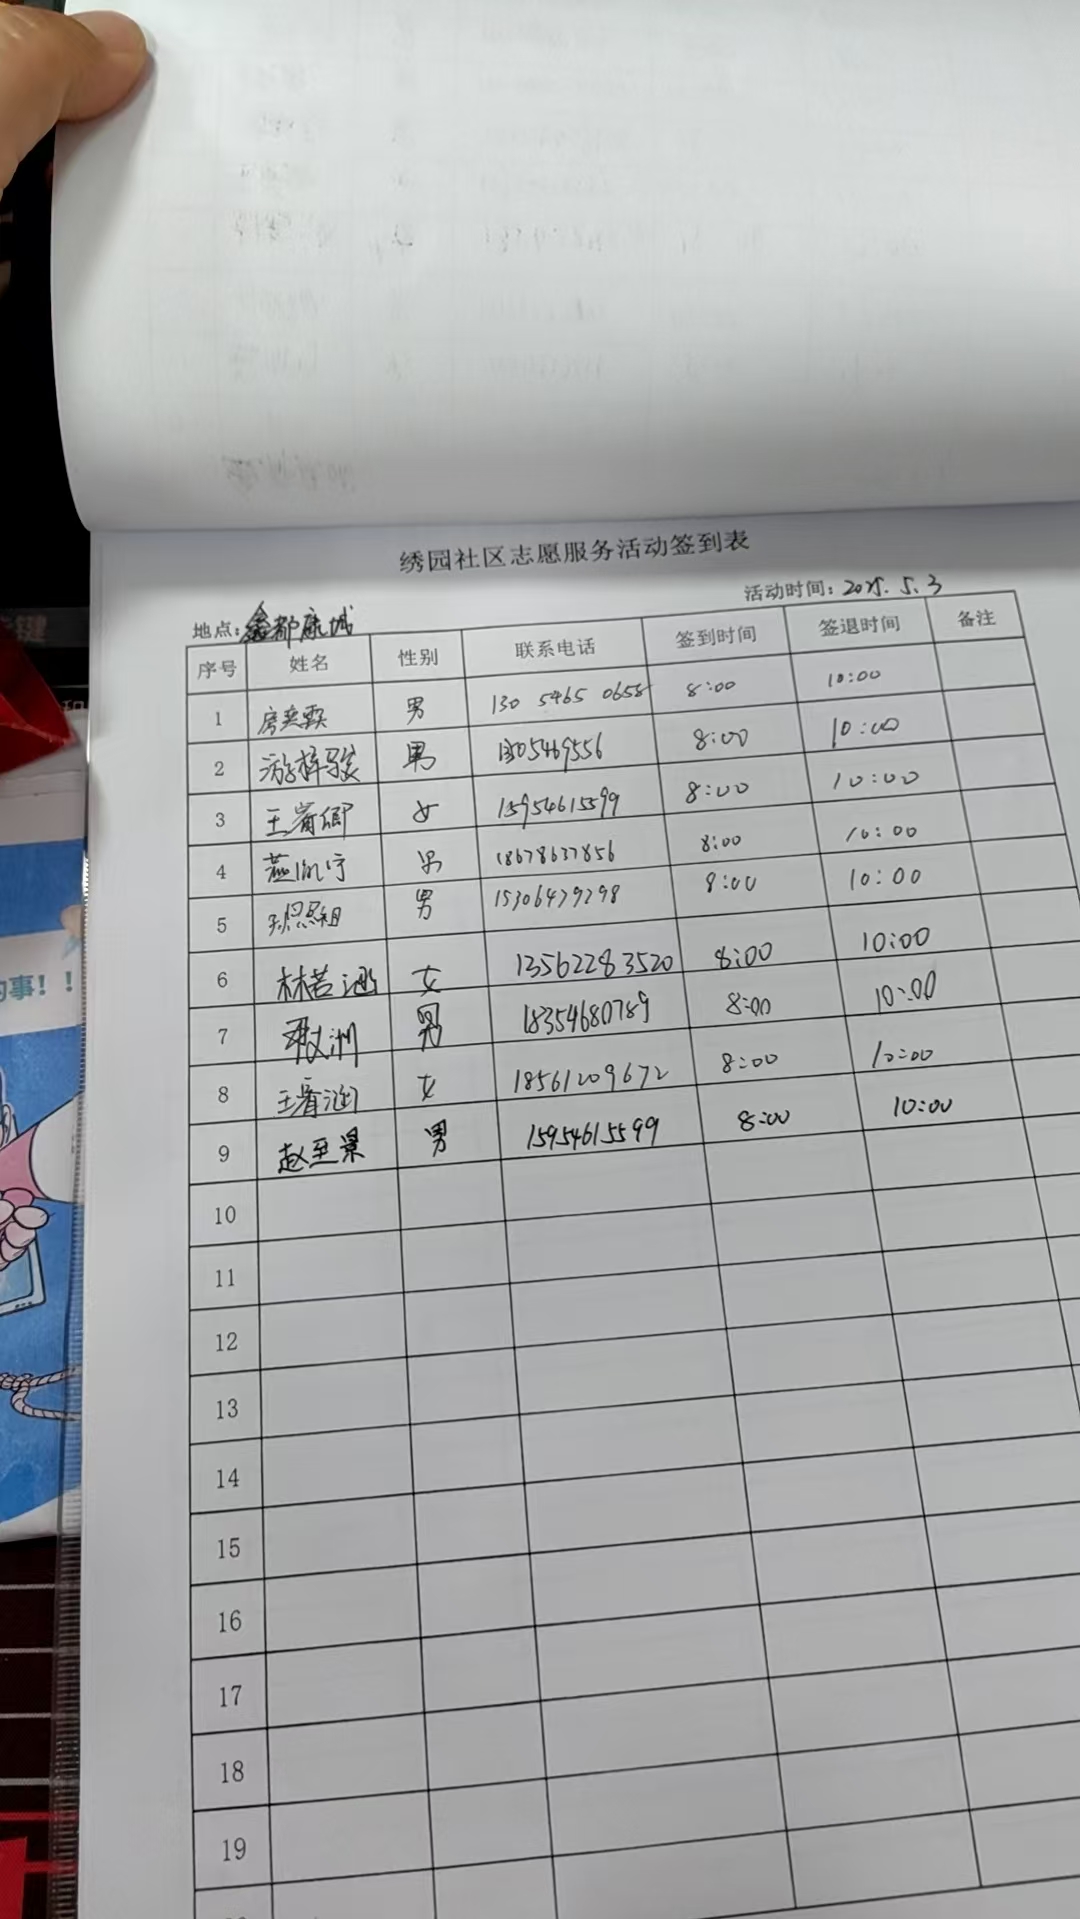 绣园社区志愿服务活动签到表
活动时间: 2025.5.3
地点: 鑫都康城
序号 姓名 性别 联系电话 签到时间 签退时间 备注
1 男 130 5465 0658 8:00 10:00
2 游梓骏 男 1305469556 8:00 10:00
3 王睿卿 女 15954615599 8:00 10:00
4 男 18678637856 8:00 10:00
5 男 15306479298 8:00 10:00
6 林若涵 女 13562283520 8:00 10:00
7 男 18354680789 8:00 10:00
8 王睿涵 女 18561209672 8:00 10:00
9 赵至景 男 15954615599 8:00 10:00
10
11
12
13
14
15
16
17
18
19
的事！！
键